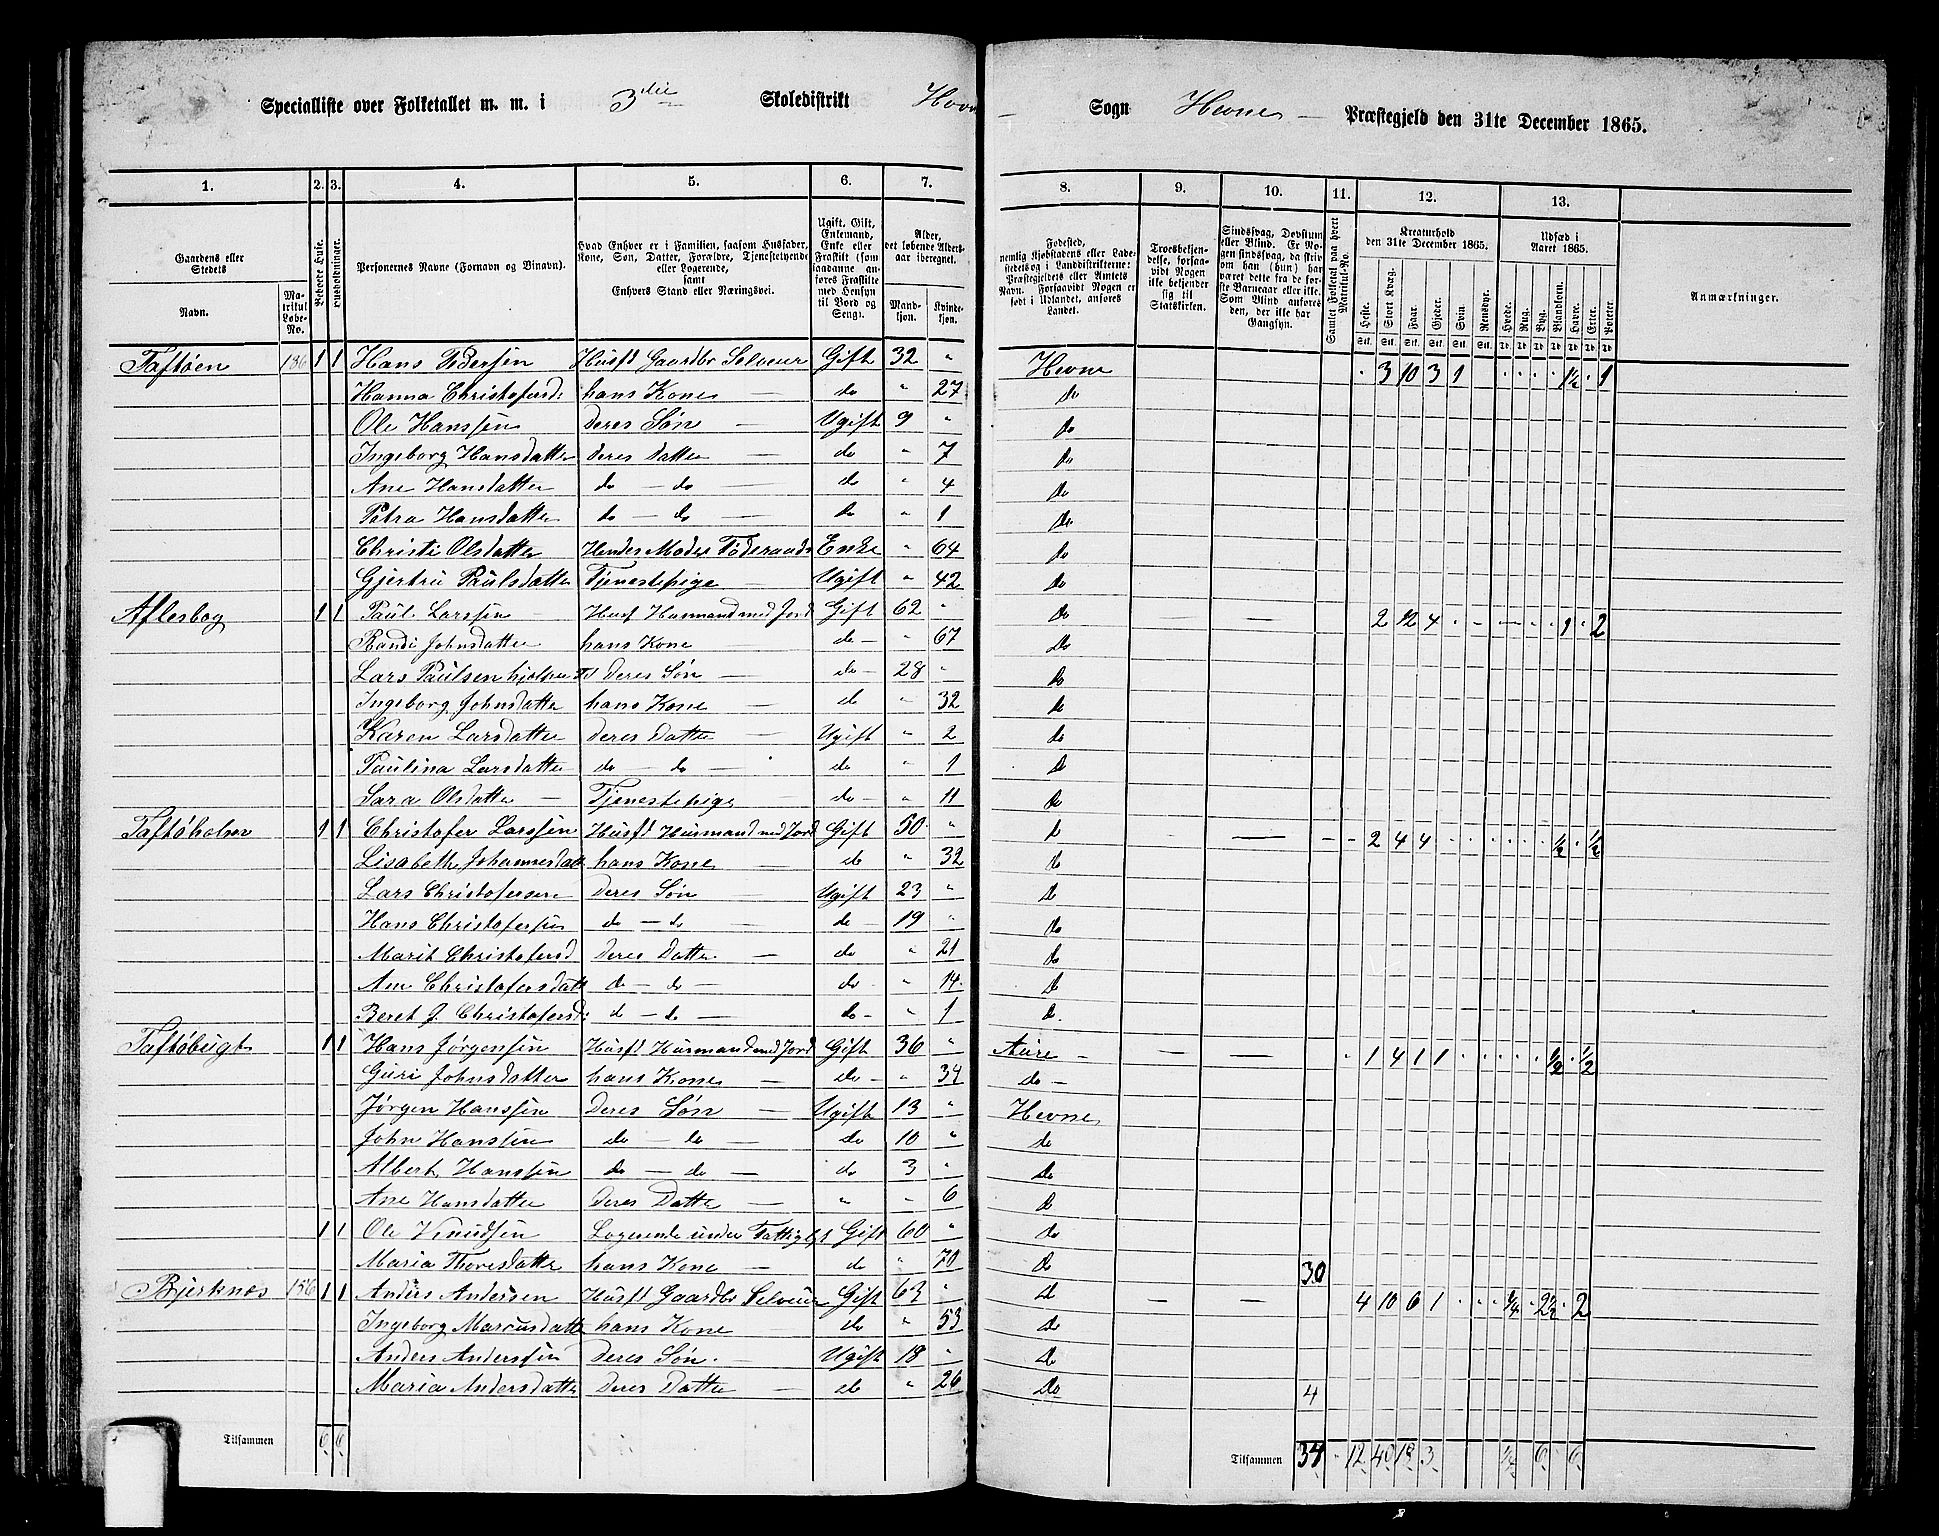 Specialliste over Folketallet m. m. i 3die Skoledistrikt Hevne Sogn Hevne Præstegjeld den 31te December 1865.
1. 2. 3. 4. 5. 6. 7. 8. 9. 10. 11. 12. 13.
Gaardens eller Stedets Navn. Matrikul Løbe-No. Beboede Huse. Husholdninger. Personernes Navne (Fornavn og Tilnavn). Hvad Enhver er i Familien, saasom Husfader, Kone, Søn, Datter, Forældre, Tjenestetyende eller Logerende, samt Enhvers Stand eller Næringsvei. Ugift, Gift, Enkemand, Enke eller Fraskilt (som saadanne anføres Fraskilte med Hensyn til Bord og Seng). Alder, det løbende Aldersaar iberegnet. Mandkjøn. Kvindekjøn.
Fødested, nemlig Kjøbstadens eller Ladestedets og i Landdistrikterne: Præstegjeldets eller Amtets Navn. Forsaavidt Nogen er født i Udlandet, anføres Landet. Troesbekjendelse, forsaavidt Nogen ikke bekjender sig til Statskirken. Sindssvag, Døvstum eller Blind. Er Nogen sindssvag, da skrives om han (hun) har været dette fra de første Barneaar eller ikke. Som Blind anføres den, der ikke har Gangsyn. Samlet Folketal paa hvert Matrikul-No. Kreaturhold den 31te December 1865. Udsæd i Aaret 1865. Anmærkninger.
Heste. Stort Kvæg. Faar. Gjeder. Svin. Rensdyr. Hvede. Rug. Byg. Blandkorn. Havre. Erter. Poteter.
Taftøen 186 1 1 Hans Pedersen Husfd Gaardbr Selveier Gift 32 " Hevne 3 10 3 1 1½ 1
Hanna Christofersd hans Kone do " 27 do
Ole Hanssen deres Søn Ugift 9 " do
Ingeborg Hansdatter deres Datter do " 7 do
Ane Hansdatter do — do do " 4 do
Petra Hansdatter do — do do " 1 do
Christi Olsdatter Hendes Moder Føderaads Enke " 64 do
Gjertru Paulsdatter Tjenestepige Ugift " 42 do
Aflesbog 1 1 Paul Larssen Husf Husmand med Jord Gift 62 " do 2 12 4 1 2
Randi Johnsdatter hans Kone do " 67 do
Lars Paulsen hjælper til deres Søn do 28 " do
Ingeborg Johnsdatter hans Kone do " 32 do
Karen Larsdatter deres Datter Ugift " 2 do
Paulina Larsdatter do — do do " 1 do
Sara Olsdatter Tjenestepige do " 11 do
Taftøholm 1 1 Christofer Larssen Husfd Husmand med Jord Gift 50 " do 2 4 4 ½ ½
Lisabeth Johannesdatt hans Kone do " 32 do
Lars Christofersen deres Søn Ugift 23 " do
Hans Christofersen do — do do 19 " do
Marit Christofersd deres Datter do " 21 do
Ane Christofersdatt do — do do " 14 do
Beret J. Christofersd: do — do do " 1 do
Taftøbugt 1 1 Hans Jørgensen Husfd Husmand med Jord Gift 36 " Aure 1 4 1 1 ½ ½
Guri Johnsdatter hans Kone do " 34 do
Jørgen Hanssen deres Søn Ugift 13 " Hevne
John Hanssen do — do do 10 " do
Albert Hanssen do — do do 3 " do
Ane Hansdatter deres Datter " " 6 do
1 1 Ole Knudsen Logerende under Fattigv Gift 60 " do
Maria Thoresdatter hans Kone do " 70 do 30
Bjerknes 156 1 1 Anders Andersen Husfd Gaardbr Selveier Gift 63 " do 4 10 6 1 ¼ 2½ 2
Ingeborg Marcusdatter hans Kone do " 53 do
Anders Anderssen deres Søn Ugift 18 " do
Maria Andersdatter deres Datter do " 26 do 4
Tilsammen 6 6 Tilsammen 34 12 40 19 3 ¼ 6 6